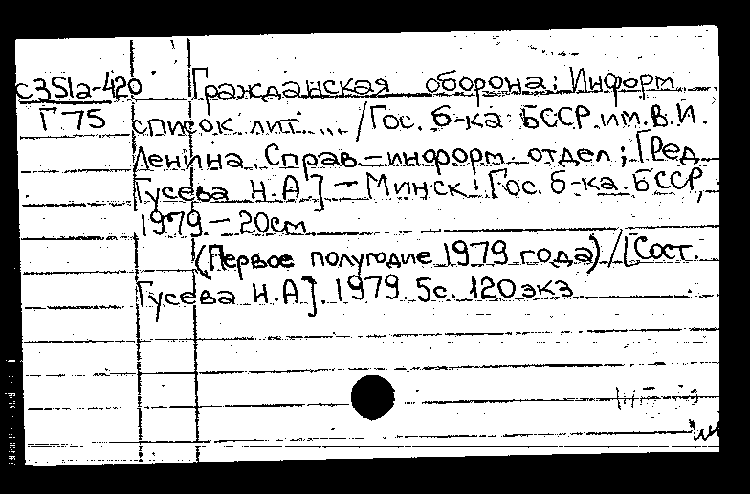 с3Sla-420 Гражданская оборона: Информ
Г 75 список лит. ... /Гос. б-ка БССР им. В.И.
Ленина. Справ-информ. отдел; [Ред.
Гусева Н.А] - Минск: Гос. б-ка БССР,
1979 - 20см
(Первое полугодие 1979 года) / [Сост.
Гусева Н.А]. 1979 5с. 120экз